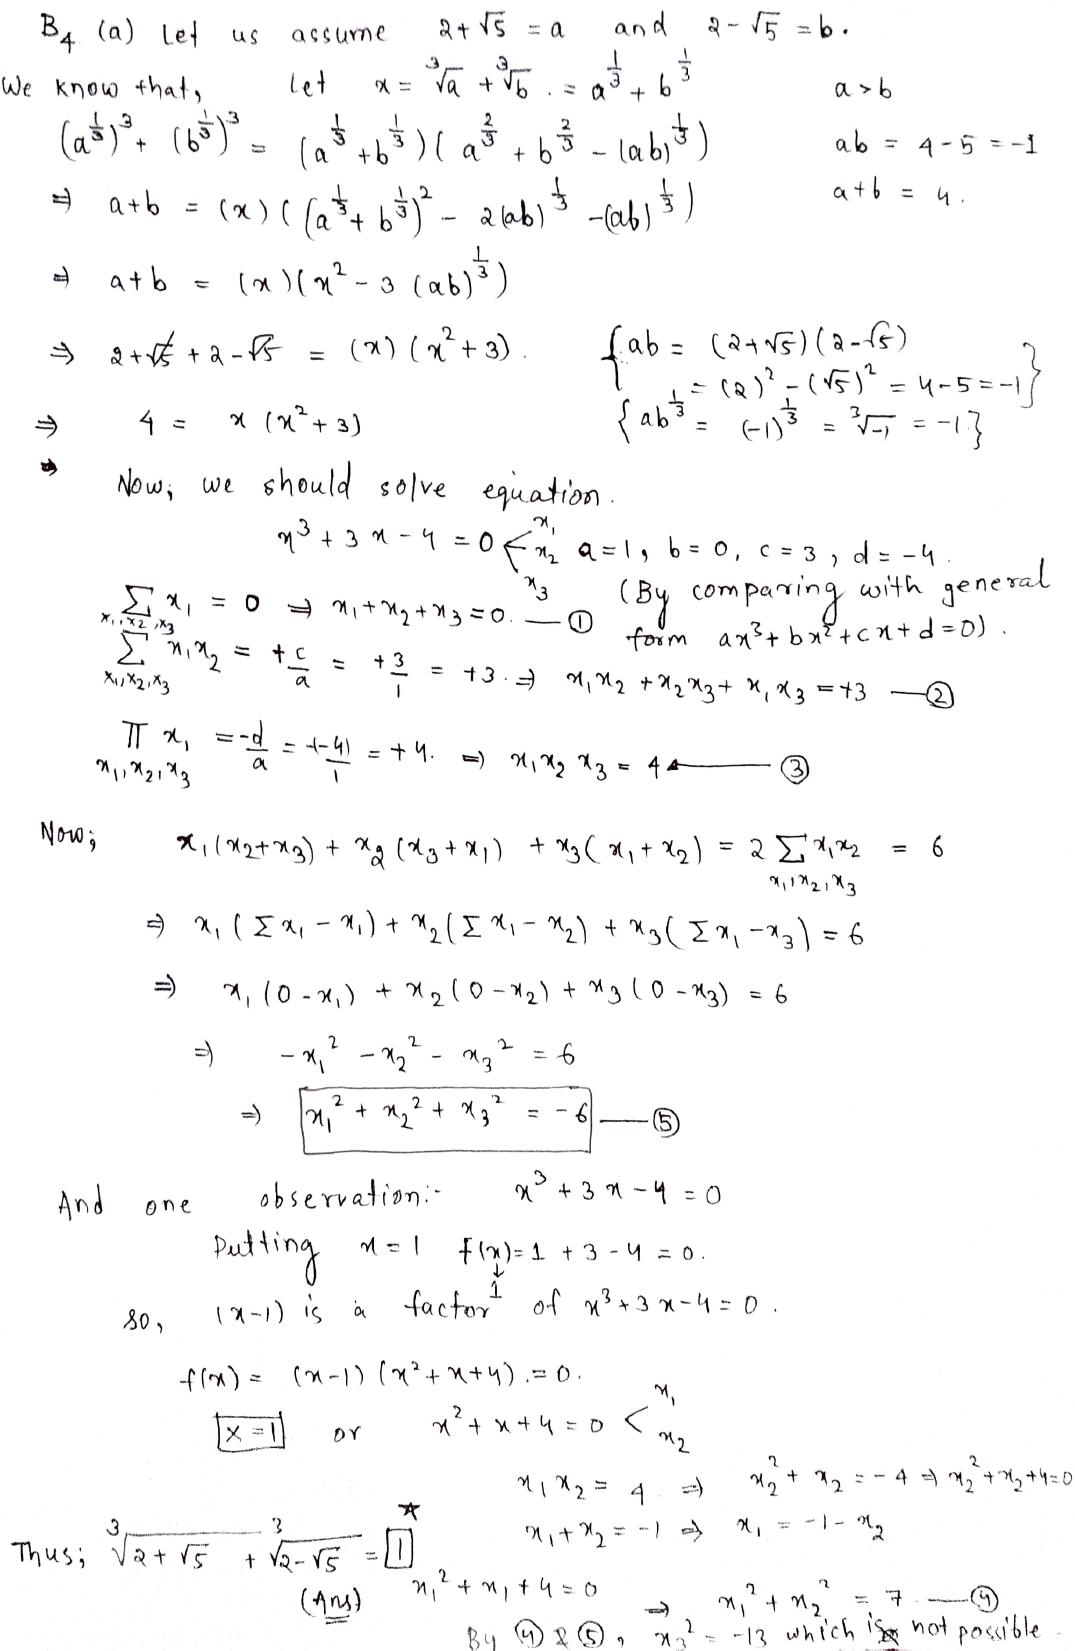 B4 (a) Let us assume 2+√5 = a and 2-√5 = b.
We know that, Let x = ∛a + ∛b . = a^(1/3) + b^(1/3) a>b
(a^(1/3))^3 + (b^(1/3))^3 = (a^(1/3) + b^(1/3)) ( a^(2/3) + b^(2/3) - (ab)^(1/3)) ab = 4-5 = -1
⇒ a+b = (x) ( (a^(1/3) + b^(1/3))^2 - 2(ab)^(1/3) -(ab)^(1/3) ) a+b = 4.
⇒ a+b = (x)(x^2 - 3 (ab)^(1/3))
⇒ 2+√5 + 2-√5 = (x) (x^2+3). { ab = (2+√5)(2-√5)
= (2)^2 - (√5)^2 = 4-5 = -1 }
⇒ 4 = x (x^2+3) { ab^(1/3) = (-1)^(1/3) = ∛-1 = -1 }
⇒ Now; we should solve equation.
x^3 + 3x - 4 = 0 < x1 x2 x3 a=1, b=0, c=3, d=-4.
(By comparing with general
form ax^3 + bx^2 + cx + d = 0).
∑ x1 = 0 ⇒ x1+x2+x3 = 0. — ①
x1,x2,x3
∑ x1x2 = +c/a = +3/1 = +3. ⇒ x1x2 + x2x3 + x1x3 = +3 — ②
x1,x2,x3
π x1 = -d/a = +(-4)/1 = +4. ⇒ x1x2x3 = 4 — ③
x1,x2,x3
Now; x1(x2+x3) + x2(x3+x1) + x3(x1+x2) = 2 ∑ x1x2 = 6
x1,x2,x3
⇒ x1(∑x1 - x1) + x2(∑x1 - x2) + x3(∑x1 - x3) = 6
⇒ x1(0-x1) + x2(0-x2) + x3(0-x3) = 6
⇒ -x1^2 - x2^2 - x3^2 = 6
⇒ x1^2 + x2^2 + x3^2 = -6 — ⑤
And one observation:- x^3 + 3x - 4 = 0
Putting x=1 f(x) = 1 + 3 - 4 = 0.
↓
1
so, (x-1) is a factor of x^3 + 3x - 4 = 0.
f(x) = (x-1) (x^2+x+4). = 0.
x=1 or x^2 + x + 4 = 0 < x1 x2
x1x2 = 4. ⇒ x2^2 + x2 = -4 ⇒ x2^2 + x2 + 4 = 0
x1+x2 = -1 ⇒ x1 = -1-x2
Thus; ∛2+√5 + ∛2-√5 = 1 *
(Ans) x1^2 + x1 + 4 = 0 ⇒ x1^2 + x2^2 = 7 — ④
By ④ & ⑤, x3^2 = -13 which is not possible.